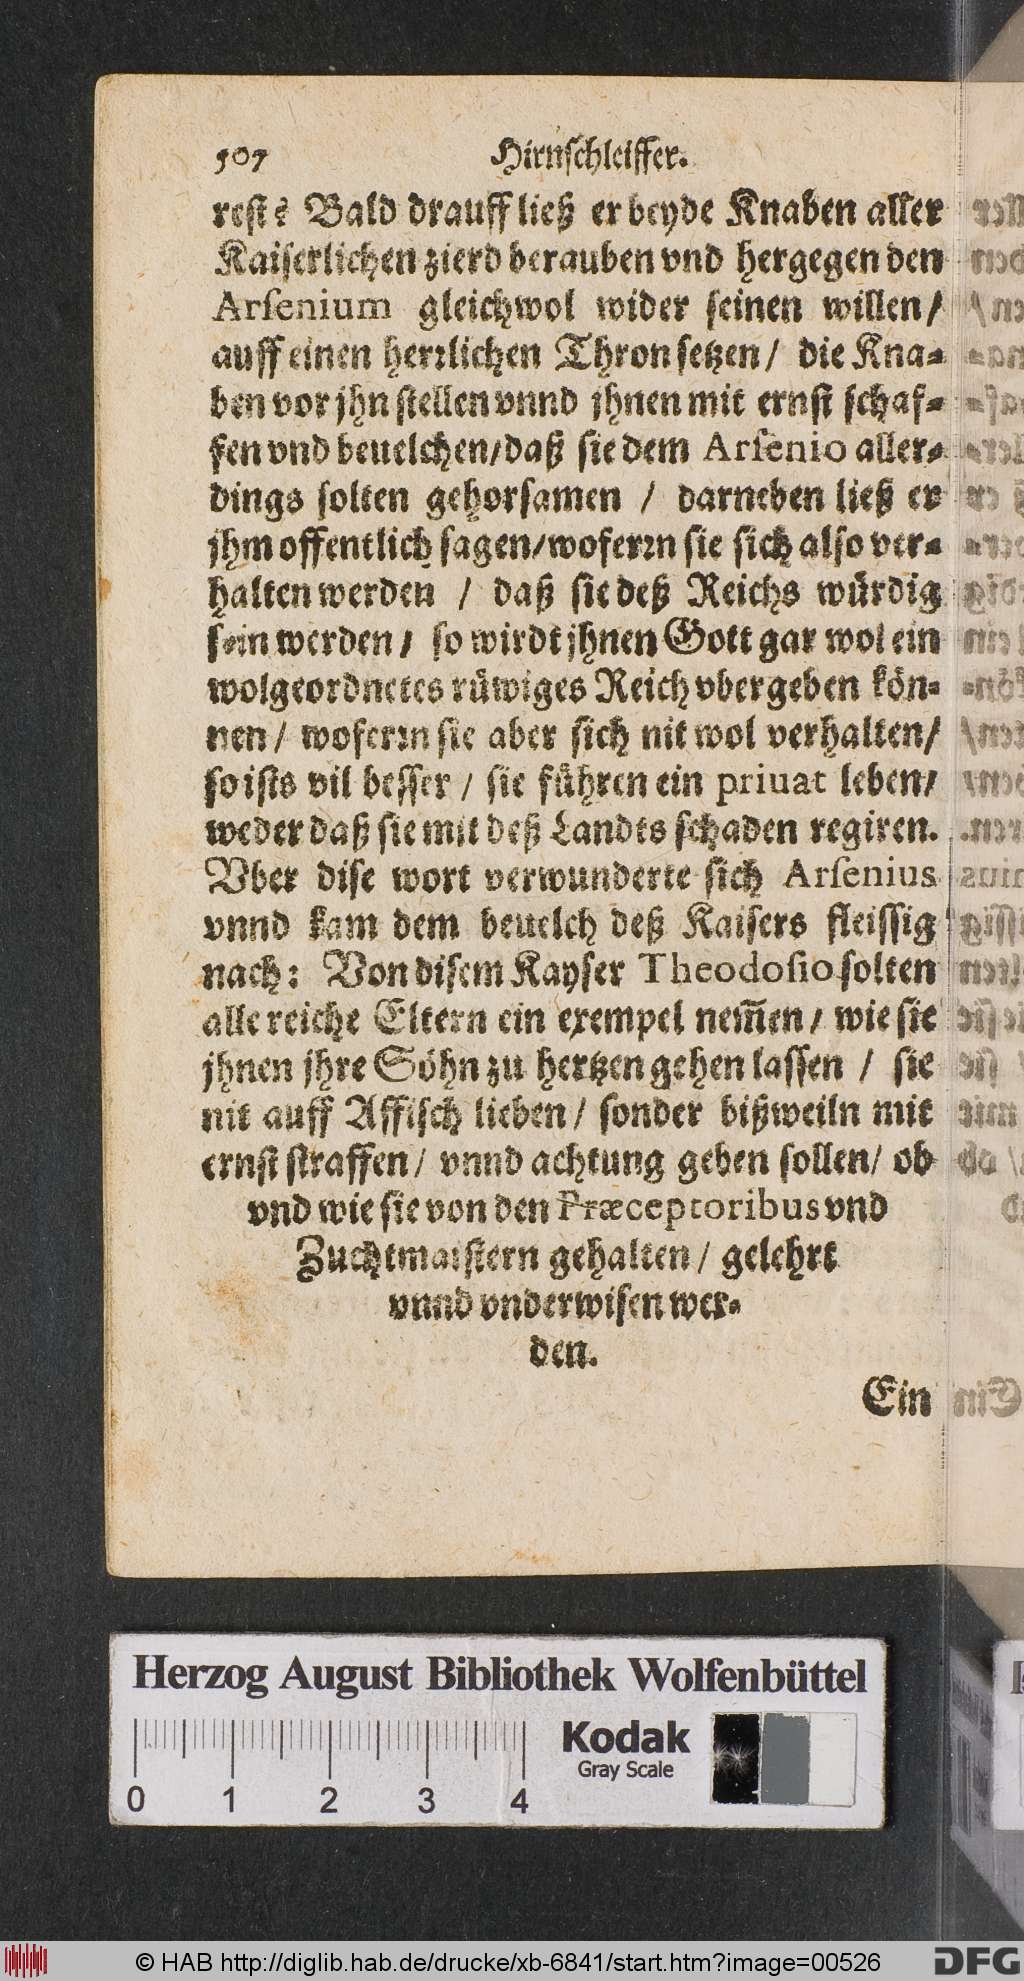 507 Hirnschleiffer.
rest? Bald drauff ließ er beyde Knaben aller
Kaiserlichen zierd berauben vnd hergegen den
Arſenium gleichwol wider seinen willen/
auff einen herꝛlichen Thron setzen/ die Kna-
ben vor jhn stellen vnnd jhnen mit ernst schaf-
fen vnd beuelchen/daß sie dem Arſenio aller-
dings solten gehorsamen / darneben ließ er
jhm offentlich sagen/woferꝛn sie sich also ver-
halten werden / daß sie deß Reichs würdig
sein werden/ so wirdt jhnen Gott gar wol ein
wolgeordnetes rüwiges Reich vbergeben kön-
nen/ woferꝛn sie aber sich nit wol verhalten/
so ists vil besser / sie führen ein priuat leben/
weder daß sie mit deß Landts schaden regiren.
Vber dise wort verwunderte sich Arſenius
vnnd kam dem beuelch deß Kaisers fleissig
nach: Von disem Kayser Theodoſio solten
alle reiche Eltern ein exempel nem̃en/ wie sie
jhnen jhre Söhn zu hertzen gehen lassen / sie
nit auff Affisch lieben/ sonder bißweiln mit
ernst straffen/ vnnd achtung geben sollen/ ob
vnd wie sie von den Præceptoribus vnd
Zuchtmaistern gehalten/ gelehrt
vnnd vnderwisen wer-
den.
Ein
Herzog August Bibliothek Wolfenbüttel
Kodak
Gray Scale
0 1 2 3 4
© HAB http://diglib.hab.de/drucke/xb-6841/start.htm?image=00526
DFG